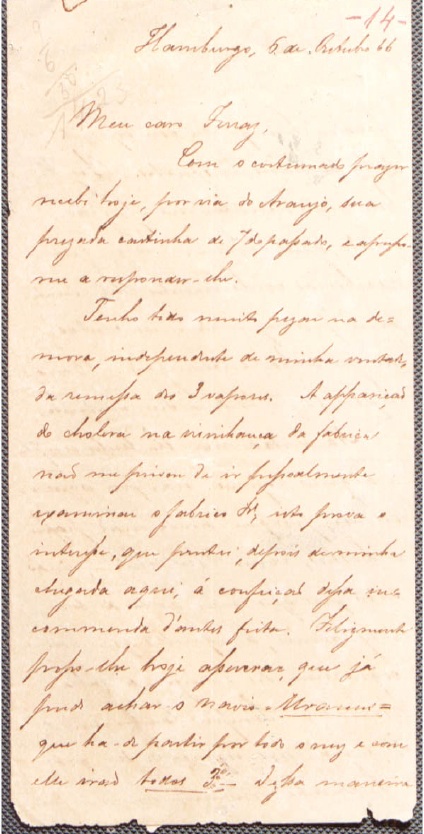 -14-
Hamburgo, 5 de Outubro 66
Meu caro Ferraz,
Com o costumado prazer
recebi hoje, por via do Araujo, sua
prezada cartinha de 7 do passado, e apresso-
me a responder-lhe.
Tenho tido muito pezar na de=
mora, independente de minha vontade,
da remessa dos 3 vapores. A appariçaõ
do cholera na visinhança da fabrica
naõ me privou de ir pessoalmente
examinar o fabrico &ª, isto prova o
interesse, que tomei, depois de minha
chegada aqui, á confeiçaõ dessa en-
commenda d'antes feita. Felizmente
posso-lhe hoje asseverar que já
pude achar o navio
que ha-de partir por todo o mez e com
elle iraõ todos 3. Dessa maneira